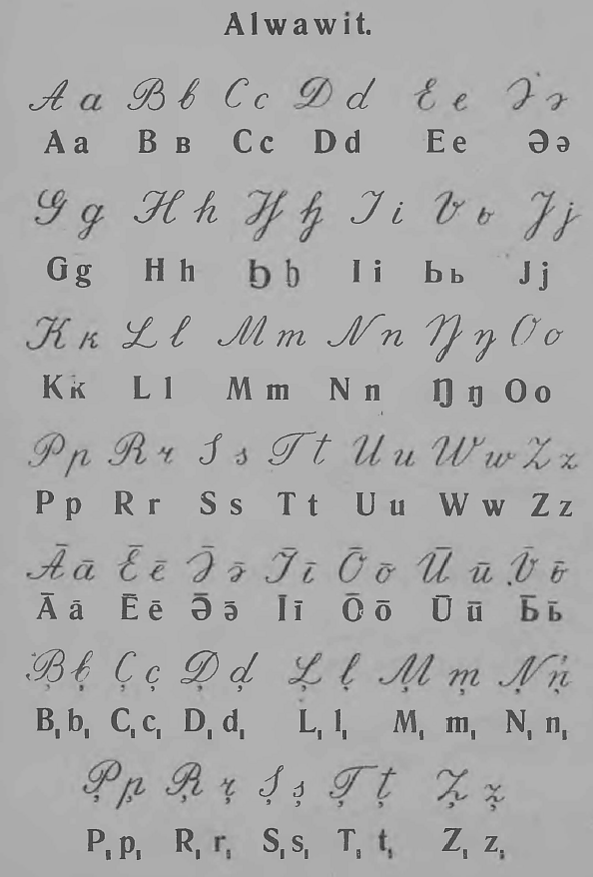 Alwawit.
A a B b C c D d E e Ə ə
A a B ʙ C c D d E e Ə ə
G g H h Ꜧ ꜧ I i Ь ь J j
G g H h Ꜧ ꜧ I i Ь ь J j
K ĸ L l M m N n Ŋ ŋ O o
K ĸ L l M m N n Ŋ ŋ O o
P p R r S s T t U u W w Z z
P p R r S s T t U u W w Z z
Ā ā Ē ē Ə̄ ə̄ Ī ī Ō ō Ū ū Ь̄ ь̄
Ā ā Ē ē Ə̄ ə̄ Ī ī Ō ō Ū ū Ь̄ ь̄
B̦ b̦ C̦ c̦ D̦ d̦ L̦ l̦ M̦ m̦ N̦ n̦
B̦ b̦ C̦ c̦ D̦ d̦ L̦ l̦ M̦ m̦ N̦ n̦
P̦ p̦ R̦ r̦ Ș ș Ț ț Z̦ z̦
P̦ p̦ R̦ r̦ Ș ș Ț ț Z̦ z̦